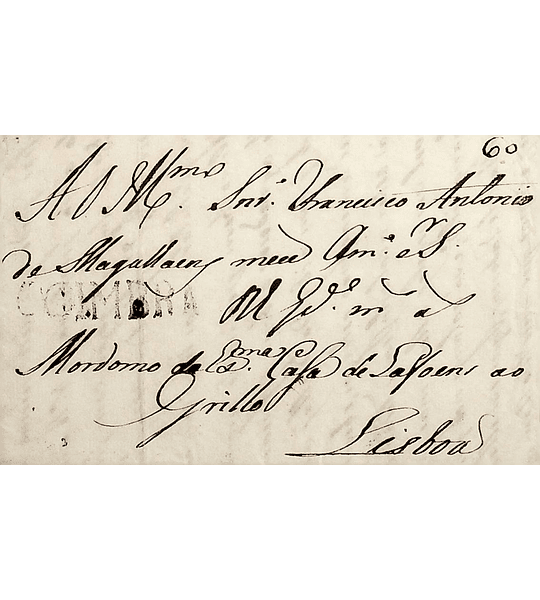 60
A O Illmo. Snr. Francisco Antonio
de Magalhaens meu Am.o e Sr.
COIMBRA
M Gd.e m.to a
Mordomo da Exma. Casa de Lafoens ao
Grillo
Lisboa